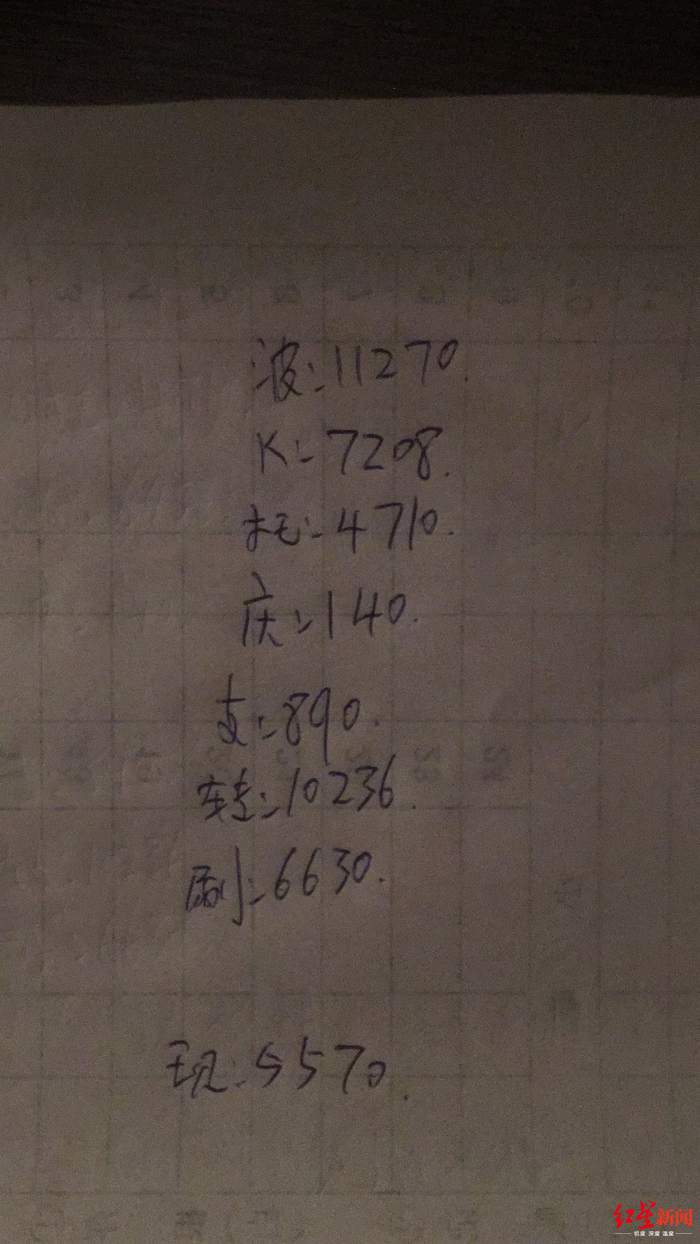 波:11270.
K:7208.
杔:4710.
庆:140.
支:890.
转:10236.
刷:6630.
现:5570.
红星新闻
锐度 深度 温度